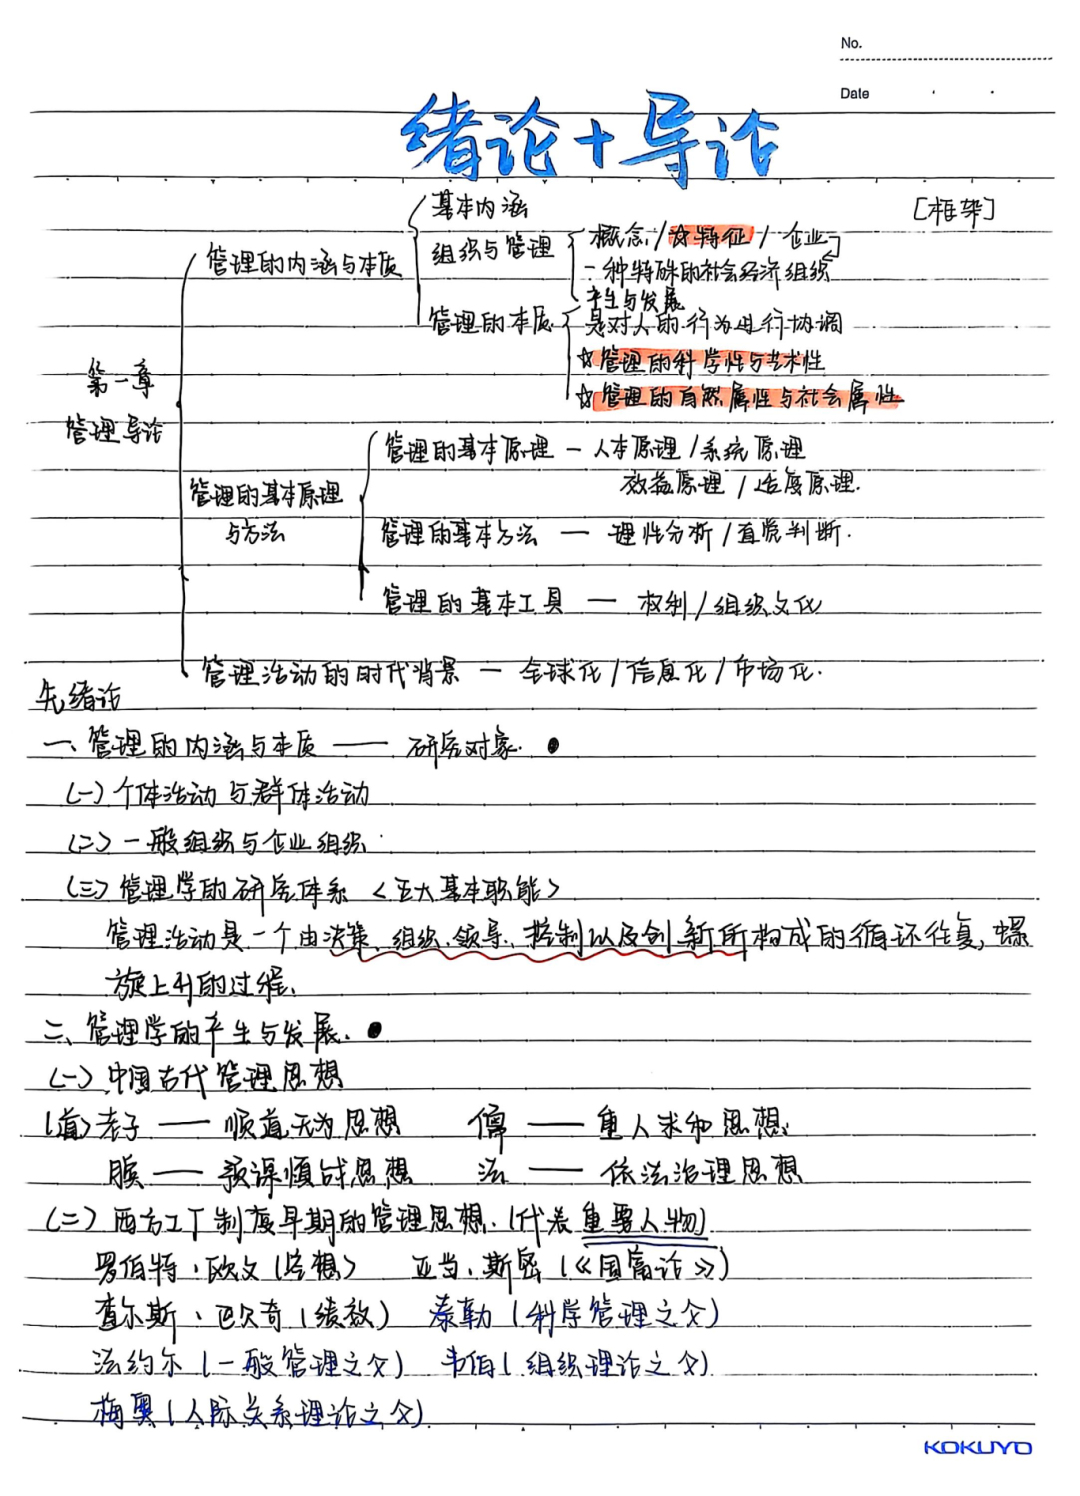 No.
Date
绪论+导论
[框架]
第一章
管理导论
管理的内涵与本质
基本内涵
组织与管理
概念/☆特征/企业
一种特殊的社会经济组织
产生与发展
管理的本质
是对人的行为进行协调
☆管理的科学性与艺术性
☆管理的自然属性与社会属性
管理的基本原理
与方法
管理的基本原理 — 人本原理/系统原理
效益原理/适度原理.
管理的基本方法 — 理性分析/直觉判断.
管理的基本工具 — 权利/组织文化
管理活动的时代背景 — 全球化/信息化/市场化.
先绪论
一、管理的内涵与本质 —— 研究对象. ●
(一)个体活动与群体活动
(二)一般组织与企业组织
(三)管理学的研究体系<五大基本职能>
管理活动是一个由决策、组织、领导、控制以及创新所构成的循环往复,螺
旋上升的过程、
二、管理学的产生与发展、●
(一)中国古代管理思想
(道)老子 —— 顺道无为思想 儒 —— 重人求和思想、
—— 预谋慎战思想 法 —— 依法治理思想
(二)西方工厂制度早期的管理思想.(代表重要人物)
罗伯特·欧文(空想) 亚当·斯密(《国富论》)
查尔斯·巴贝奇(绩效) 泰勒(科学管理之父)
法约尔(一般管理之父) 韦伯(组织理论之父)
梅奥(人际关系理论之父)
KOKUYO